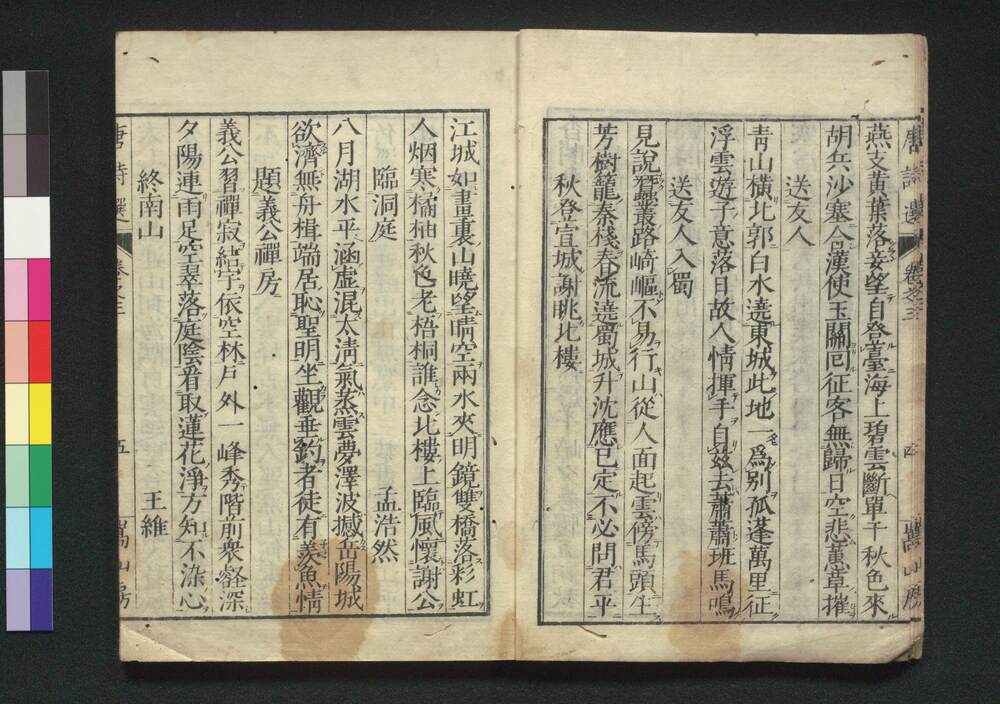 燕支黃葉落妾望自登臺海上碧雲斷單于秋色來
胡兵沙塞合漢使玉關囘征客無歸日空悲蕙草摧
送友人
靑山橫北郭白水遶東城此地一爲別孤蓬萬里征
浮雲遊子意落日故人情揮手自茲去蕭蕭班馬鳴
送友人入蜀
見說蠶叢路崎嶇不易行山從人面起雲傍馬頭生
芳樹籠秦棧春流遶蜀城升沈應已定不必問君平
秋登宣城謝眺北樓
江城如畫裏山曉望晴空兩水夾明鏡雙橋落彩虹
人烟寒橘柚秋色老梧桐誰念北樓上臨風懷謝公
臨洞庭 孟浩然
八月湖水平涵虛混太淸氣蒸雲夢澤波撼岳陽城
欲濟無舟楫端居恥聖明坐觀垂釣者徒有羨魚情
題義公禪房
義公習禪寂結宇依空林戶外一峰秀階前衆壑深
夕陽連雨足空翠落庭陰看取蓮花淨方知不染心
終南山 王維
唐詩選 卷之三 五 嵩山房